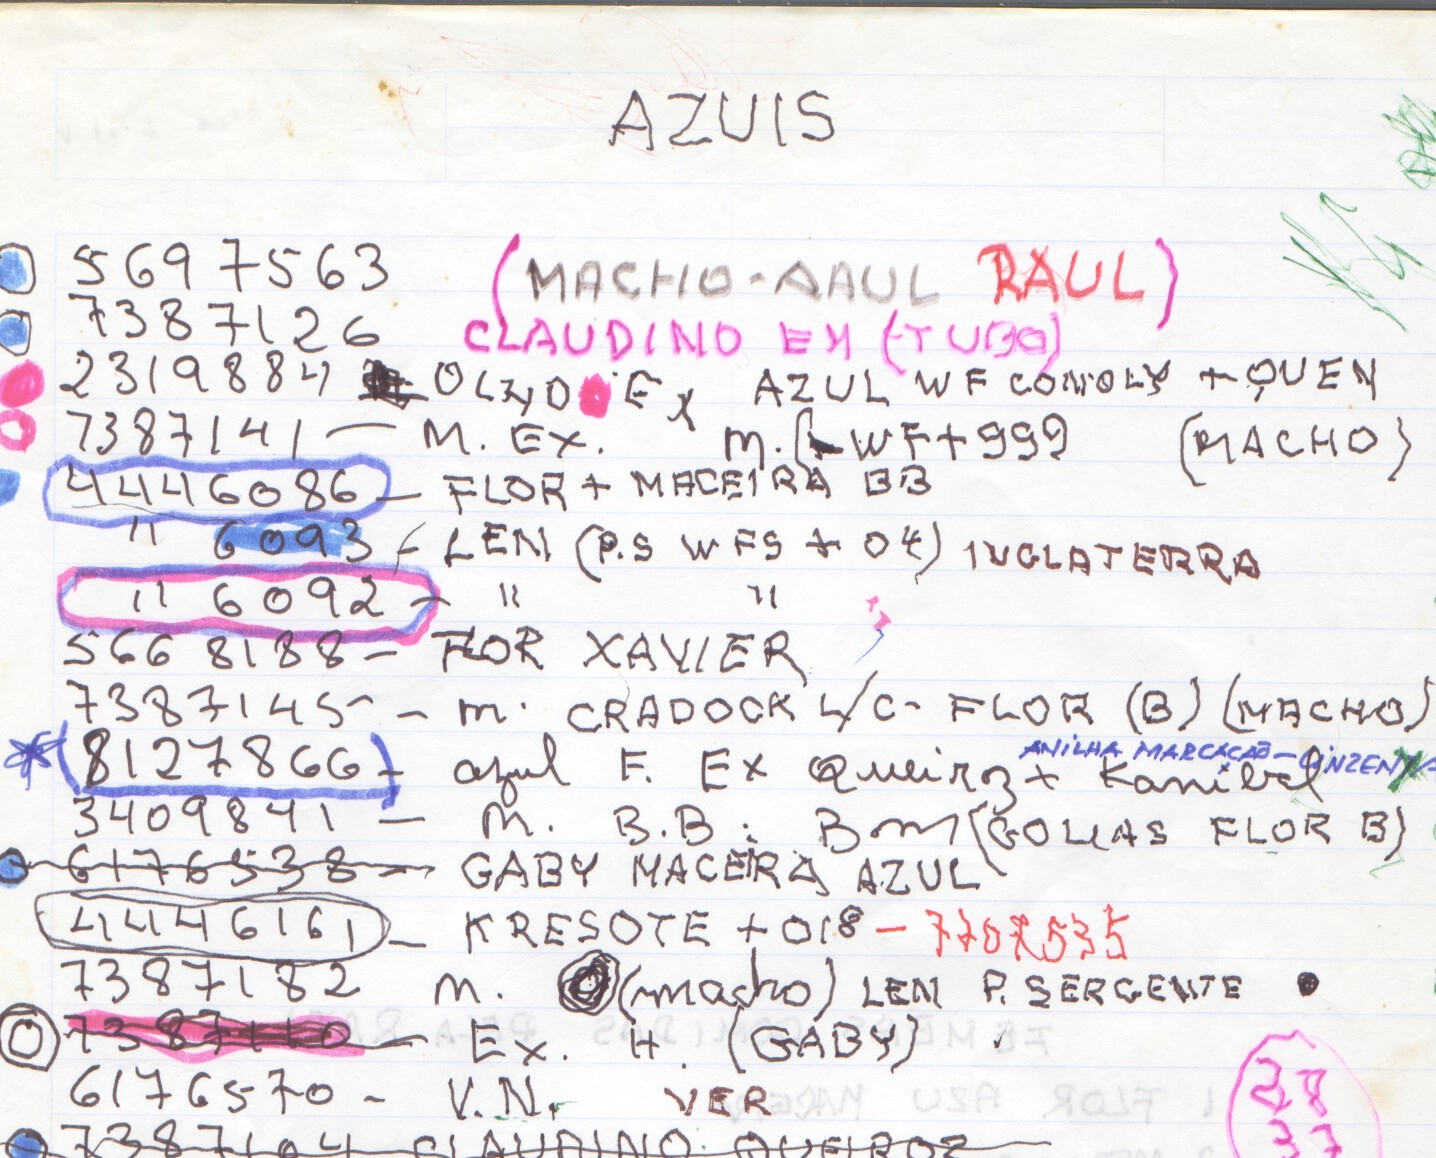 AZUIS
5697563 (MACHO-AAUL RAUL)
7387126 CLAUDINO EM (TUBO)
2319884 AZUL WF CONOLY + QUEN
7387141 — M. EX. M. WF+999 (MACHO)
4446086 - FLOR + MACEIRA BB
" 6093 - LEN (P.S WFS + 04) INGLATERRA
" 6092 - " "
5668188 - FLOR XAVIER
7387145 - m. CRADOCK L/C- FLOR (B) (MACHO)
ANILHA MARCAÇÃO - CINZENTA
8127866 - azul F. Ex Queiroz + Kanibal
3409841 - M. B.B. Bm (GOLIAS FLOR B)
6176538 - GABY MACEIRA AZUL
4446161 - KRESOTE + 018 - 7707535
7387182 M. (macho) LEN P. SERGENTE
7387110 - Ex. H. (GABY)
6176570 - V.N. VER
28
7387104 CLAUDINO QUEIROZ
37